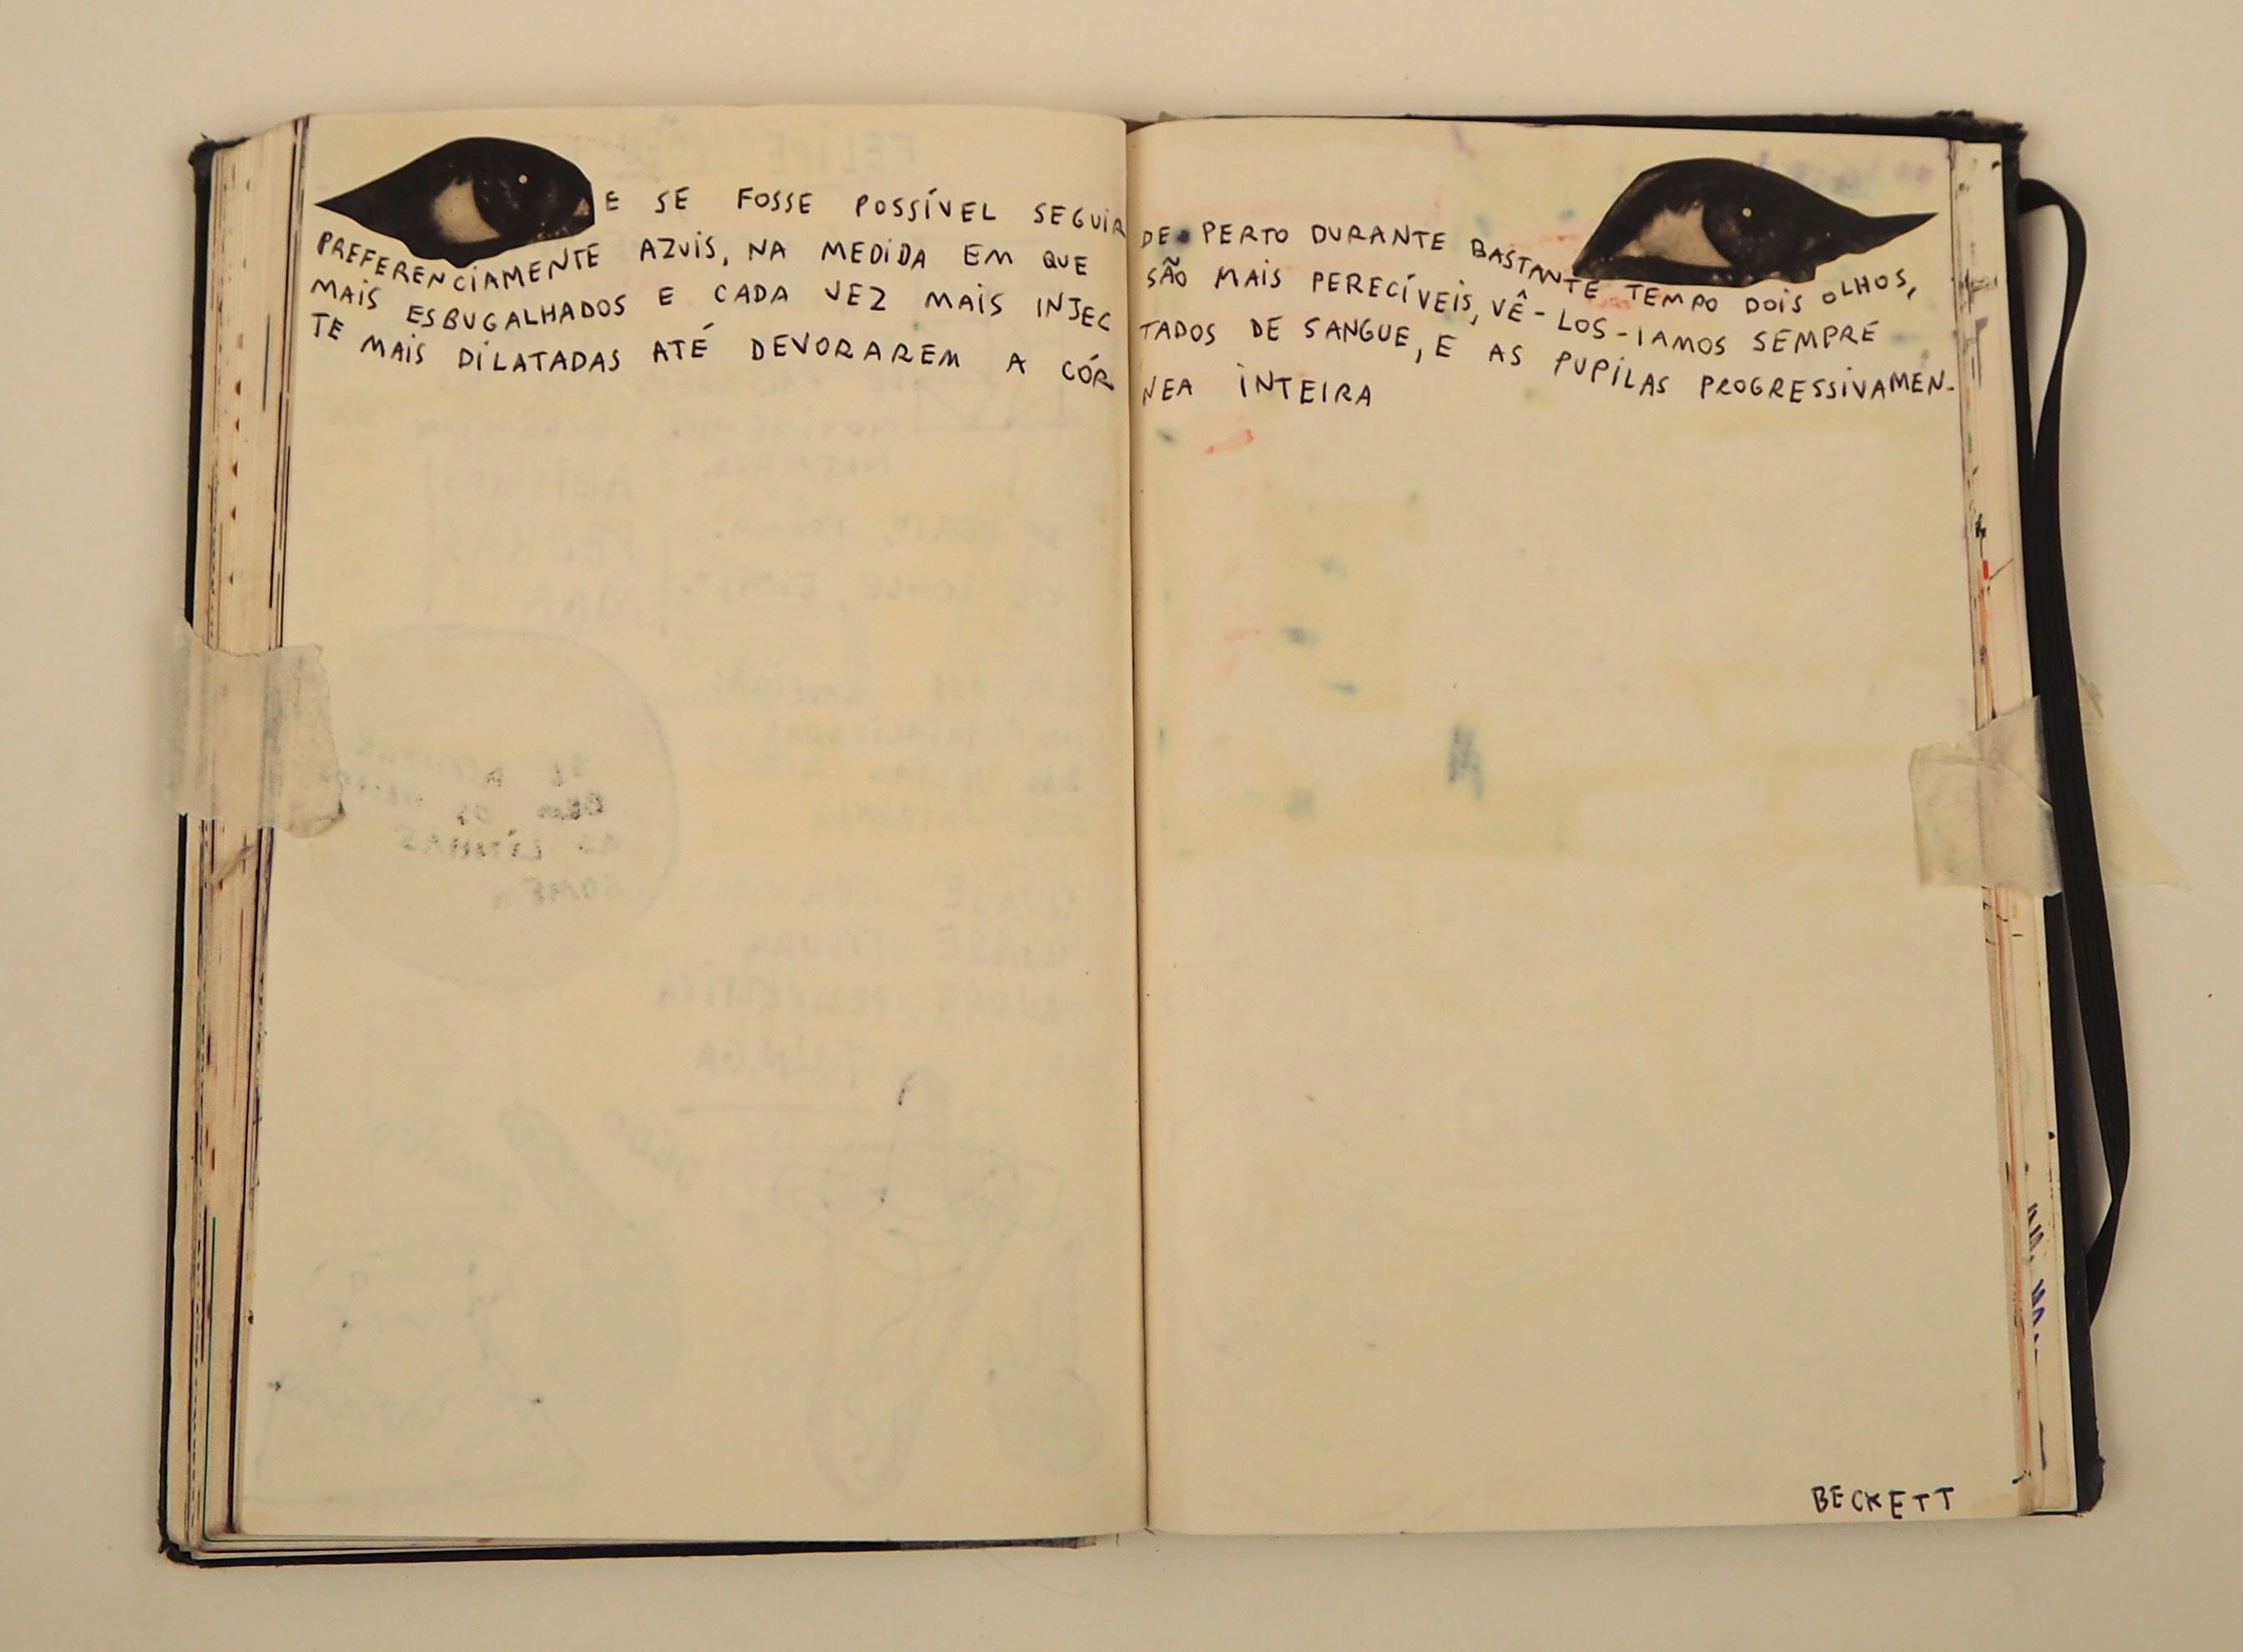 E SE FOSSE POSSÍVEL SEGUIR DE PERTO DURANTE BASTANTE TEMPO DOIS OLHOS,
PREFERENCIAMENTE AZUIS, NA MEDIDA EM QUE SÃO MAIS PERECÍVEIS, VÊ-LOS-IAMOS SEMPRE
MAIS ESBUGALHADOS E CADA VEZ MAIS INJEC TADOS DE SANGUE, E AS PUPILAS PROGRESSIVAMEN-
TE MAIS DILATADAS ATÉ DEVORAREM A CÓR NEA INTEIRA
BECKETT